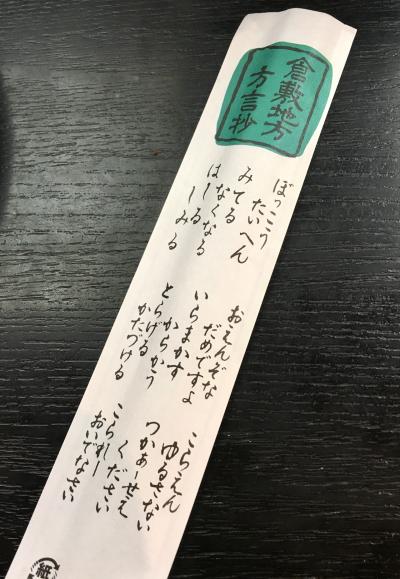 倉敷地方
方言抄
ぼっこう
たいへん
みてる
なくなる
はしる
しみる
おえんぞな
だめですよ
いらまかす
からかう
とらげる
かたづける
こらえん
ゆるさない
つかぁーせえ
ください
おいでなさい
紙